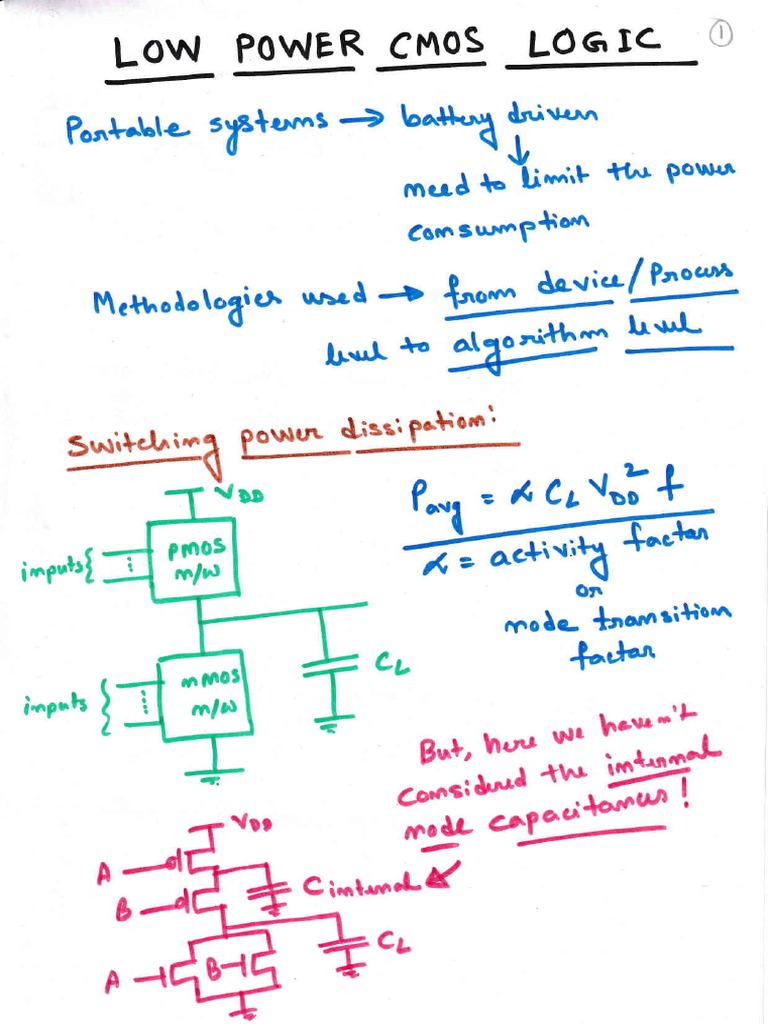 LOW POWER CMOS LOGIC
1
Portable systems → battery driven
↓
need to limit the power
consumption
Methodologies used → from device/Process
level to algorithm level
Switching power dissipation:
VDD
inputs{
pmos
n/w
CL
inputs{
nmos
n/w
Pavg = α CL VDD² f
α = activity factor
or
node transition
factor
But, here we haven't
considered the internal
node capacitances!
VDD
A
B
C internal
CL
A
B